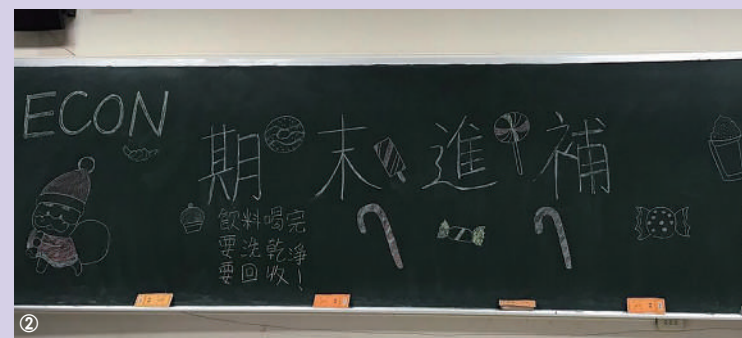 ECON
期末進補
飲料喝完
要洗乾淨
要回收!
②